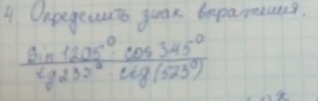 4 Определить знак выражения.
sin 1205° · cos 345°
tg 232° ctg (523°)